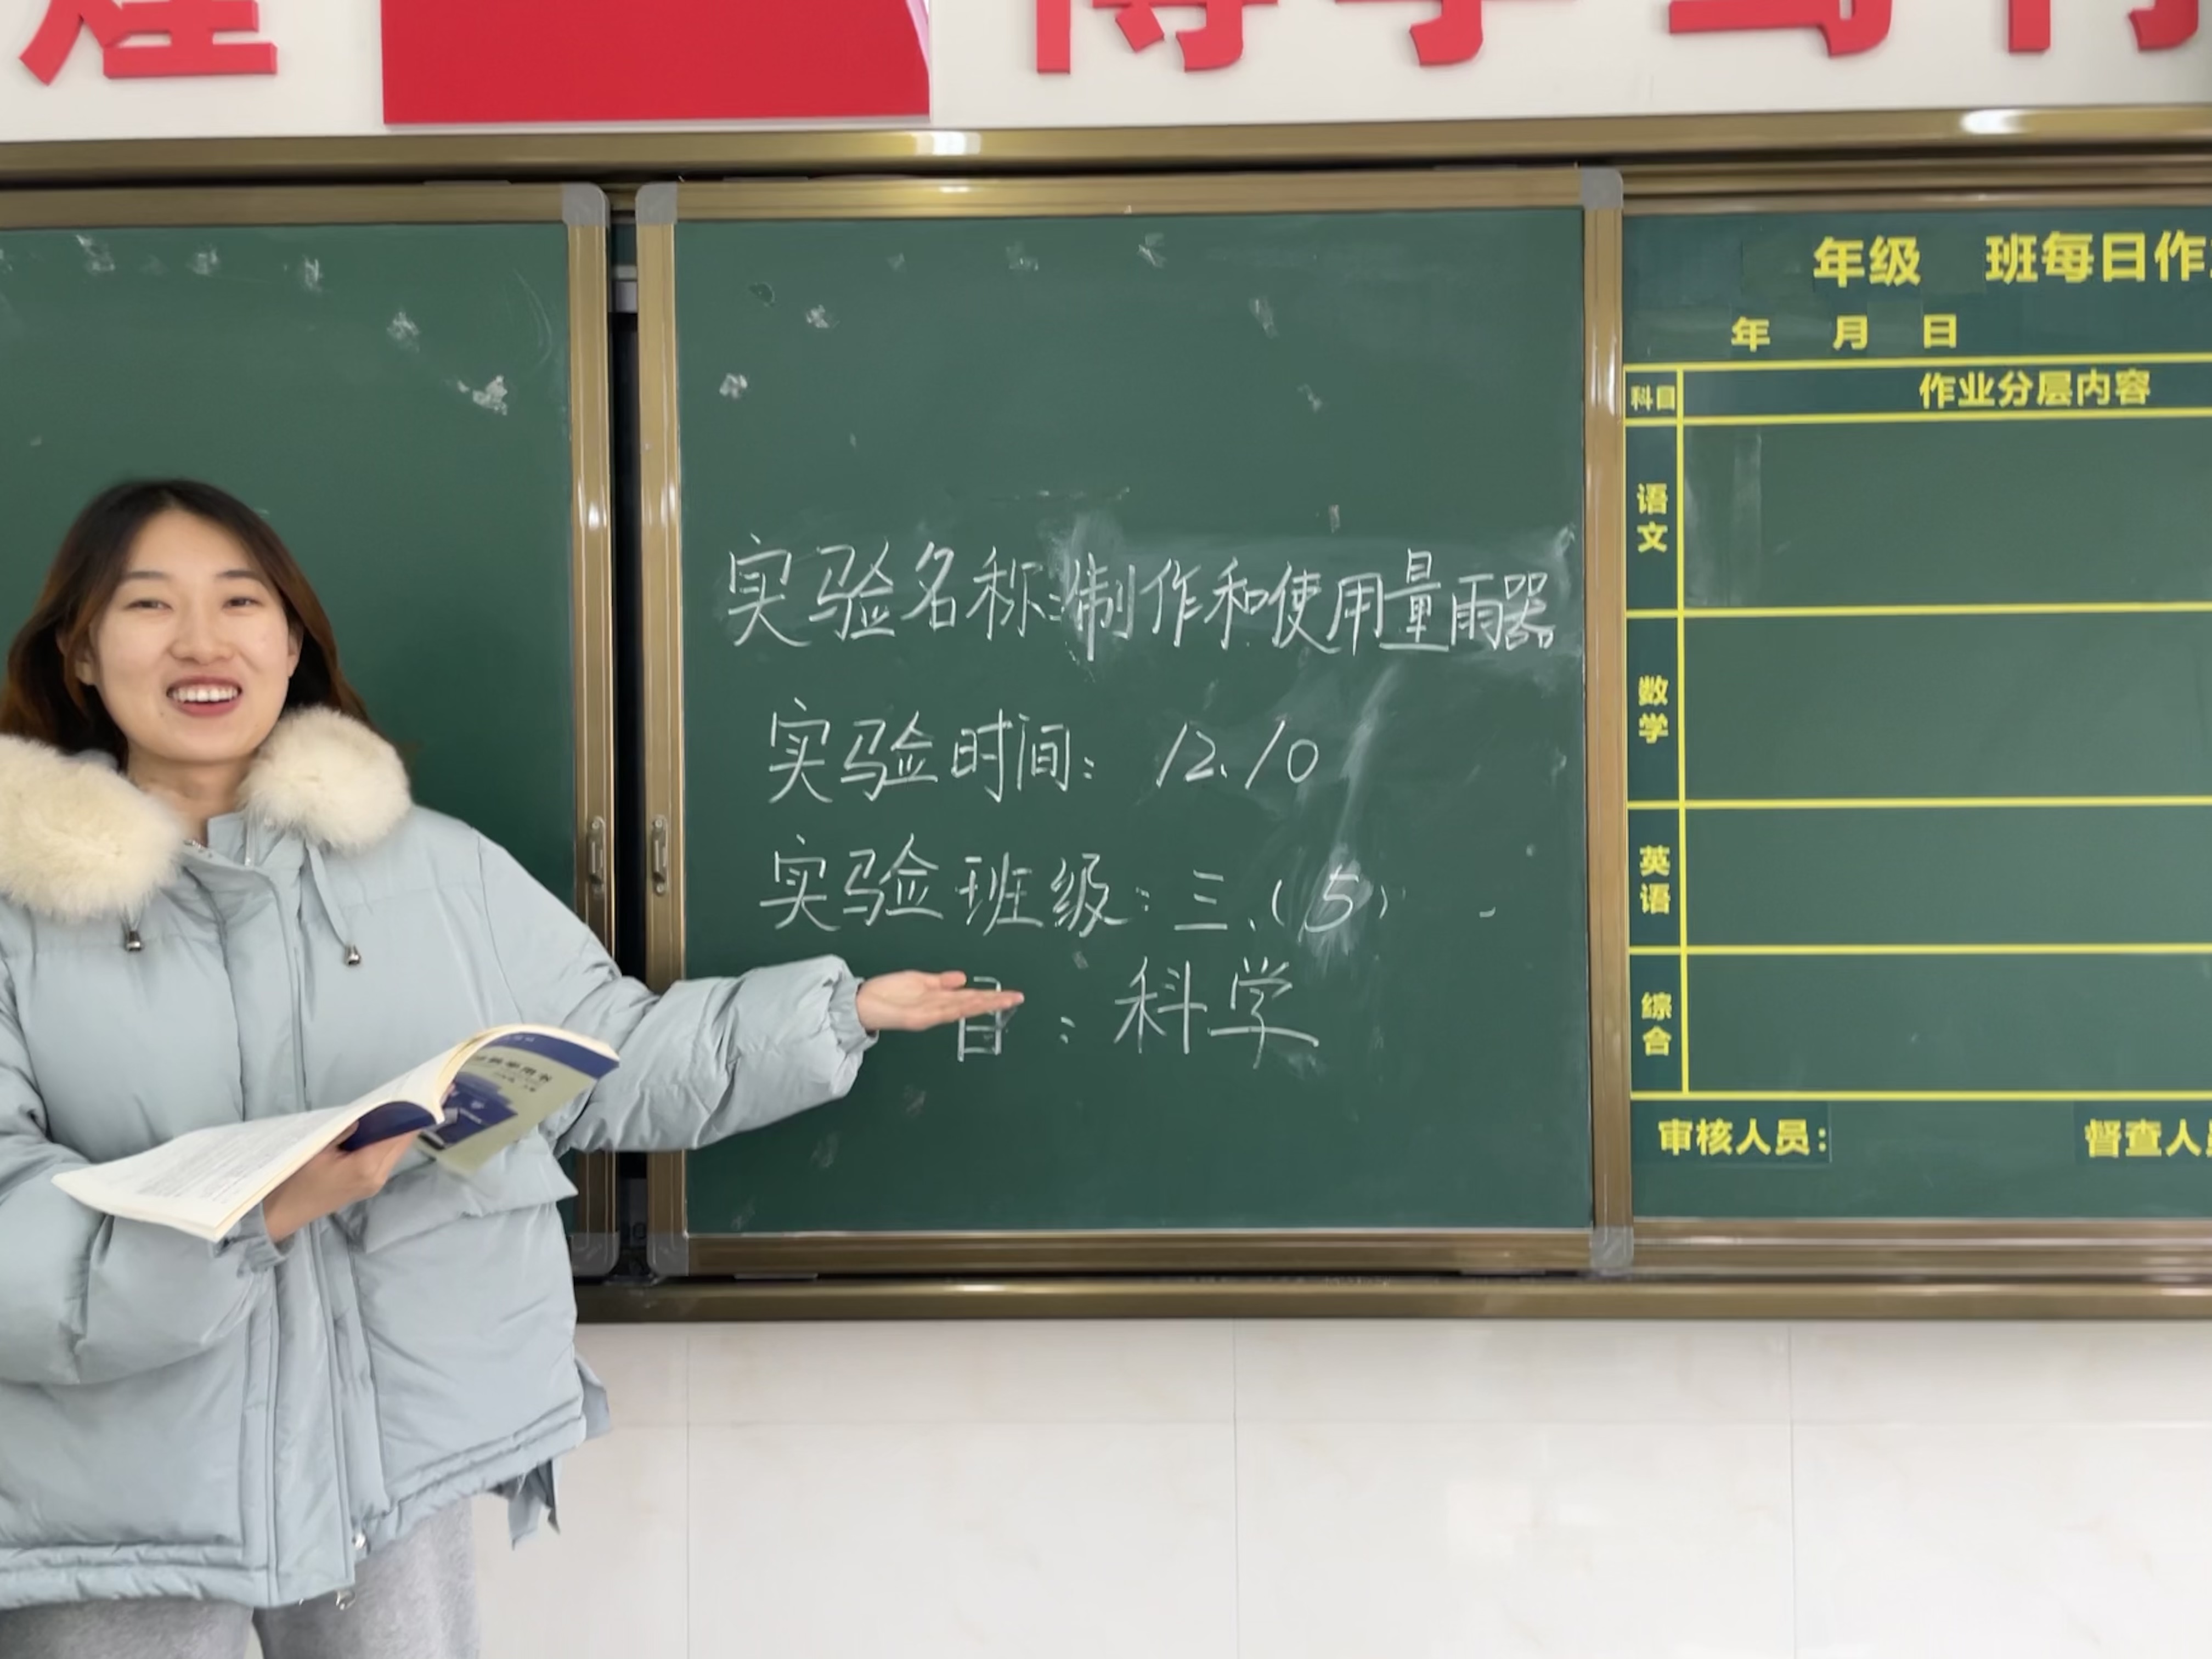 实验名称:制作和使用量雨器
实验时间: 12.10
实验班级: 三.(5)
目:科学
年级 班每日作
年 月 日
科目 作业分层内容
语文
数学
英语
综合
审核人员: 督查人